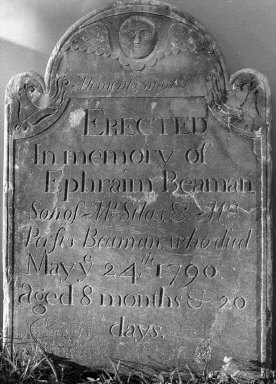 Memento mori
ERECTED
In memory of
Ephraim Beaman,
Son of Mr. Silas & Mrs.
Persis Beaman, who died
May ye 24th 1790
aged 8 months & 20
days.